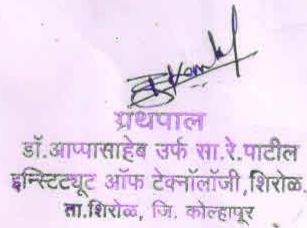 ग्रंथपाल
डॉ.आप्पासाहेब उर्फ सा.रे.पाटील
इन्स्टिट्यूट ऑफ टेक्नॉलॉजी,शिरोळ.
ता.शिरोळ, जि. कोल्हापूर